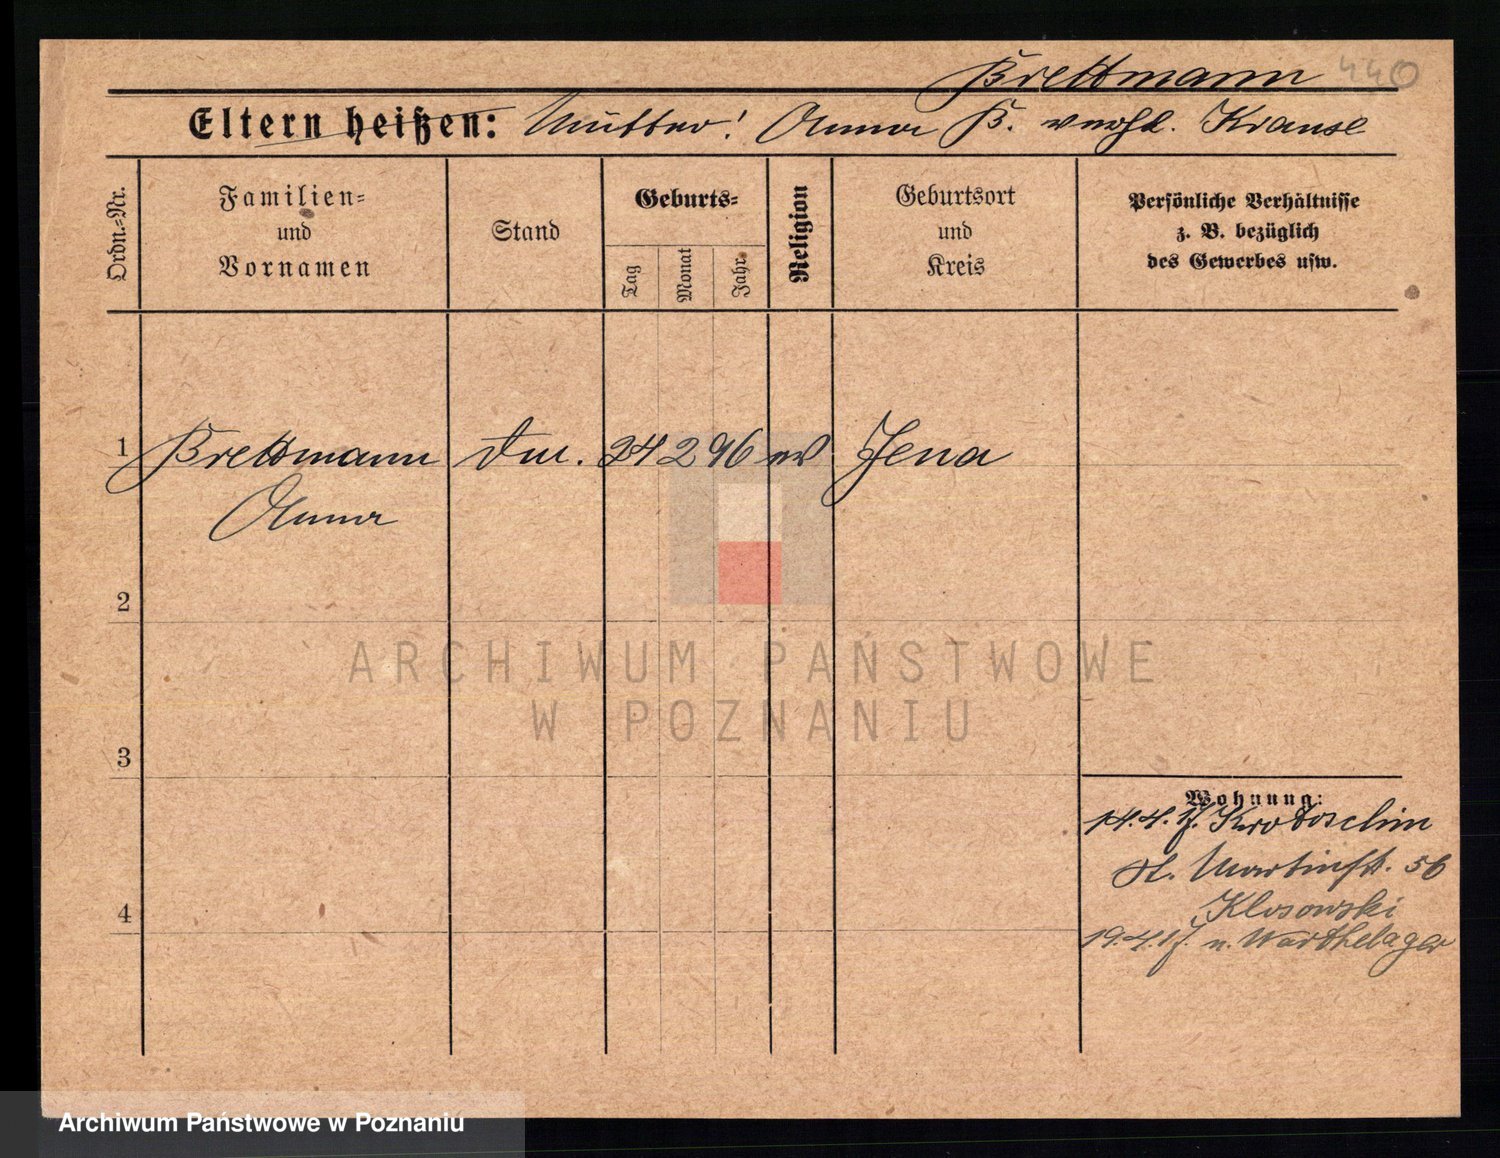 Brettmann 440
Eltern heißen: Mutter: Anna B. verehl. Krause
Ordn.-Nr.
Familien-
und
Vornamen
Stand
Geburts-
Tag
Monat
Jahr
Religion
Geburtsort
und
Kreis
Persönliche Verhältnisse
z. B. bezüglich
des Gewerbes usw.
1 Brettmann 24 2 96 ev Jena
Anna
2
3
4
Wohnung:
14.4.17. Krotoschin
St. Martinstr. 56
Klosowski
19.4.17. n. Warthelager
ARCHIWUM PAŃSTWOWE
W POZNANIU
Archiwum Państwowe w Poznaniu